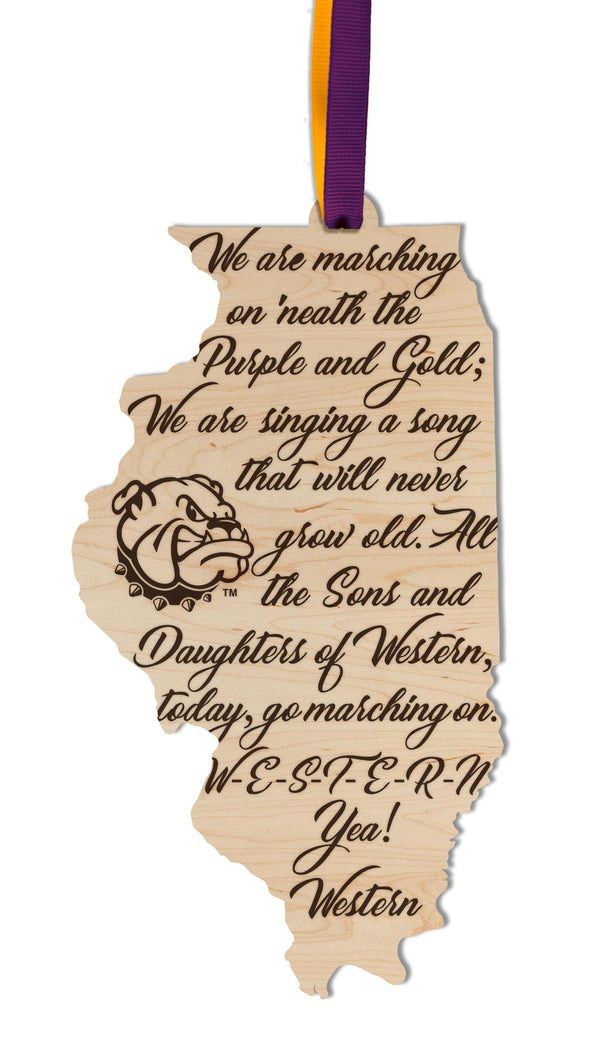 We are marching
on 'neath the
Purple and Gold;
We are singing a song
that will never
grow old. All
TM
the Sons and
Daughters of Western,
today, go marching on.
W-E-S-T-E-R-N
Yea!
Western